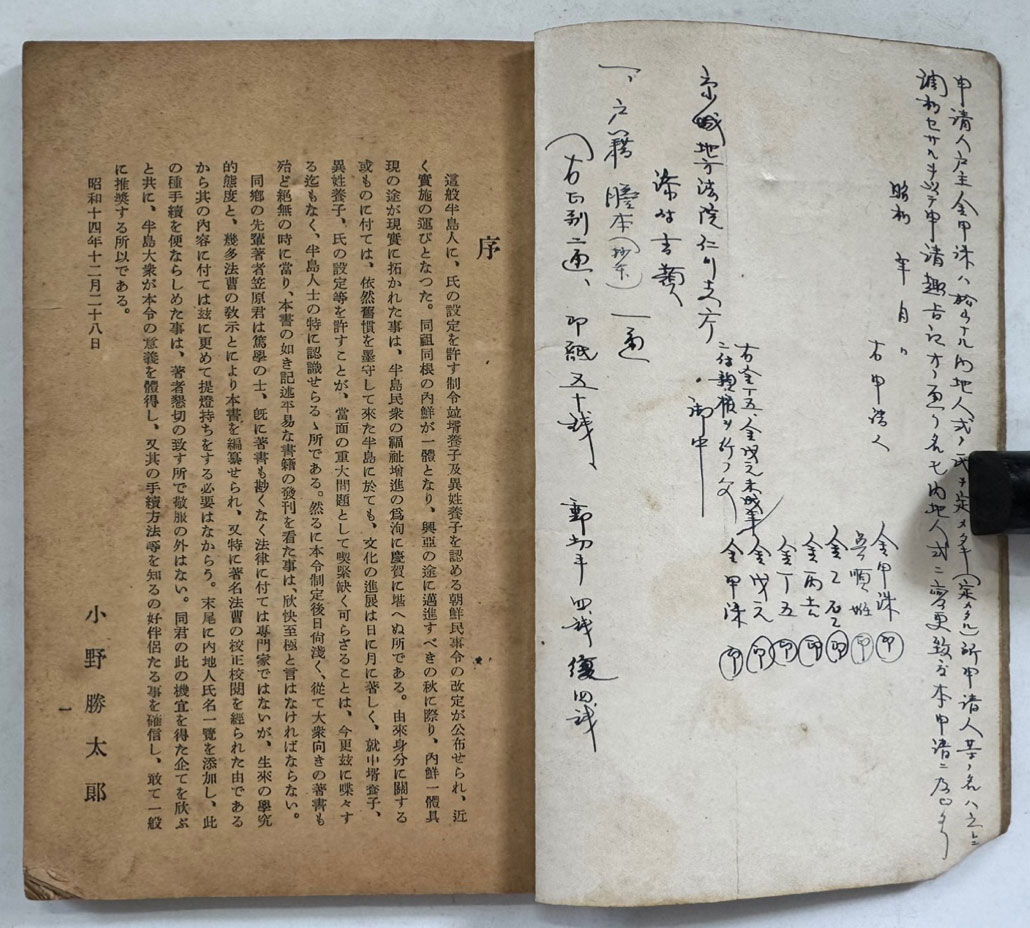 申請人戶主金甲洙ハ
昭和 年 月 日
右申請人
金甲洙 印
印
金乙石 印
金丙吉 印
金丁五 印
金戊元 印
右金丁五、金戊元未成年
ニ付親權ヲ行フ父
金甲洙 印
京城地方法院仁川支厅 御中
添付書類
一、戶籍謄本(抄本) 一通
右正副二通、印紙五十錢、郵切手四錢
序
這般半島人に、氏の設定を許す制令竝壻養子及異姓養子を認める朝鮮民事令の改定が公布せられ、近
く實施の運びとなつた。同祖同根の內鮮が一體となり、興亞の途に邁進すべきの秋に際り、內鮮一體具
現の途が現實に拓かれた事は、半島民衆の福祉增進の爲洵に慶賀に堪へぬ所である。由來身分に關する
或ものに付ては、依然舊慣を墨守して來た半島に於ても、文化の進展は日に月に著しく、就中壻養子、
異姓養子、氏の設定等を許すことが、當面の重大問題として喫緊缺く可らざることは、今更玆に喋々す
る迄もなく、半島人士の特に認識せらるゝ所である。然るに本令制定後日尙淺く、從て大衆向きの著書も
殆ど絕無の時に當り、本書の如き記述平易な書籍の發刊を看た事は、欣快至極と言はなければならない。
同鄕の先輩著者笠原君は篤學の士、旣に著書も尠くなく法律に付ては專門家ではないが、生來の學究
的態度と、幾多法曹の敎示とにより本書を編纂せられ、又特に著名法曹の校正校閱を經られた由である
から其の內容に付ては玆に更めて提燈持ちをする必要はなからう。末尾に內地人氏名一覽を添加し、此
の種手續を便ならしめた事は、著者懇切の致す所で敬服の外はない。同君の此の機宜を得た企てを欣ぶ
と共に、半島大衆が本令の意義を體得し、又其の手續方法等を知るの好伴侶たる事を確信し、敢て一般
に推奬する所以である。
昭和十四年十二月二十八日
小野勝太郞
一